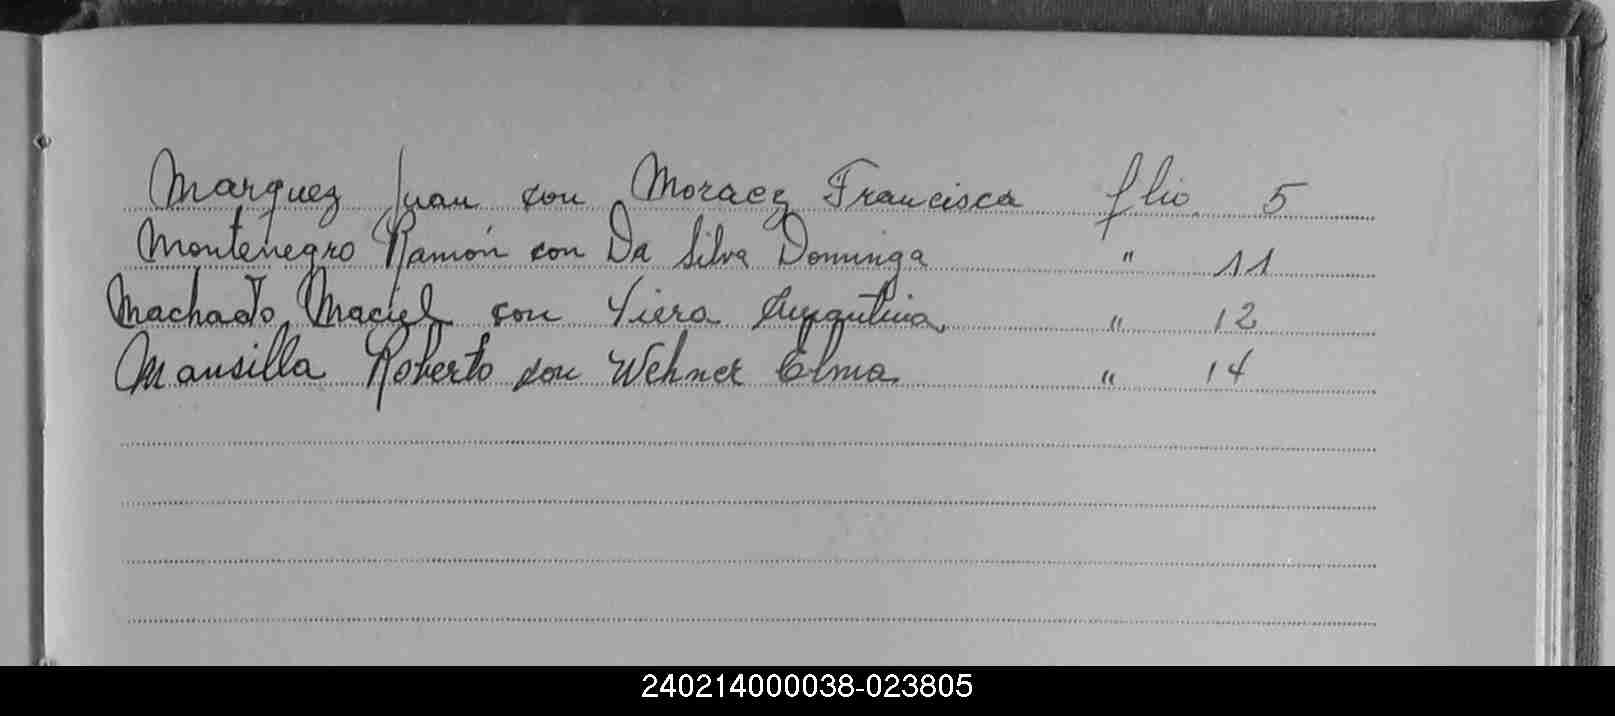 Marquez Juan con Moraez Francisca flio 5
Montenegro Ramón con Da Silva Dominga " 11
Machado Maciel con Viera " 12
Mansilla Roberto con Wehner Elma " 14
240214000038-023805